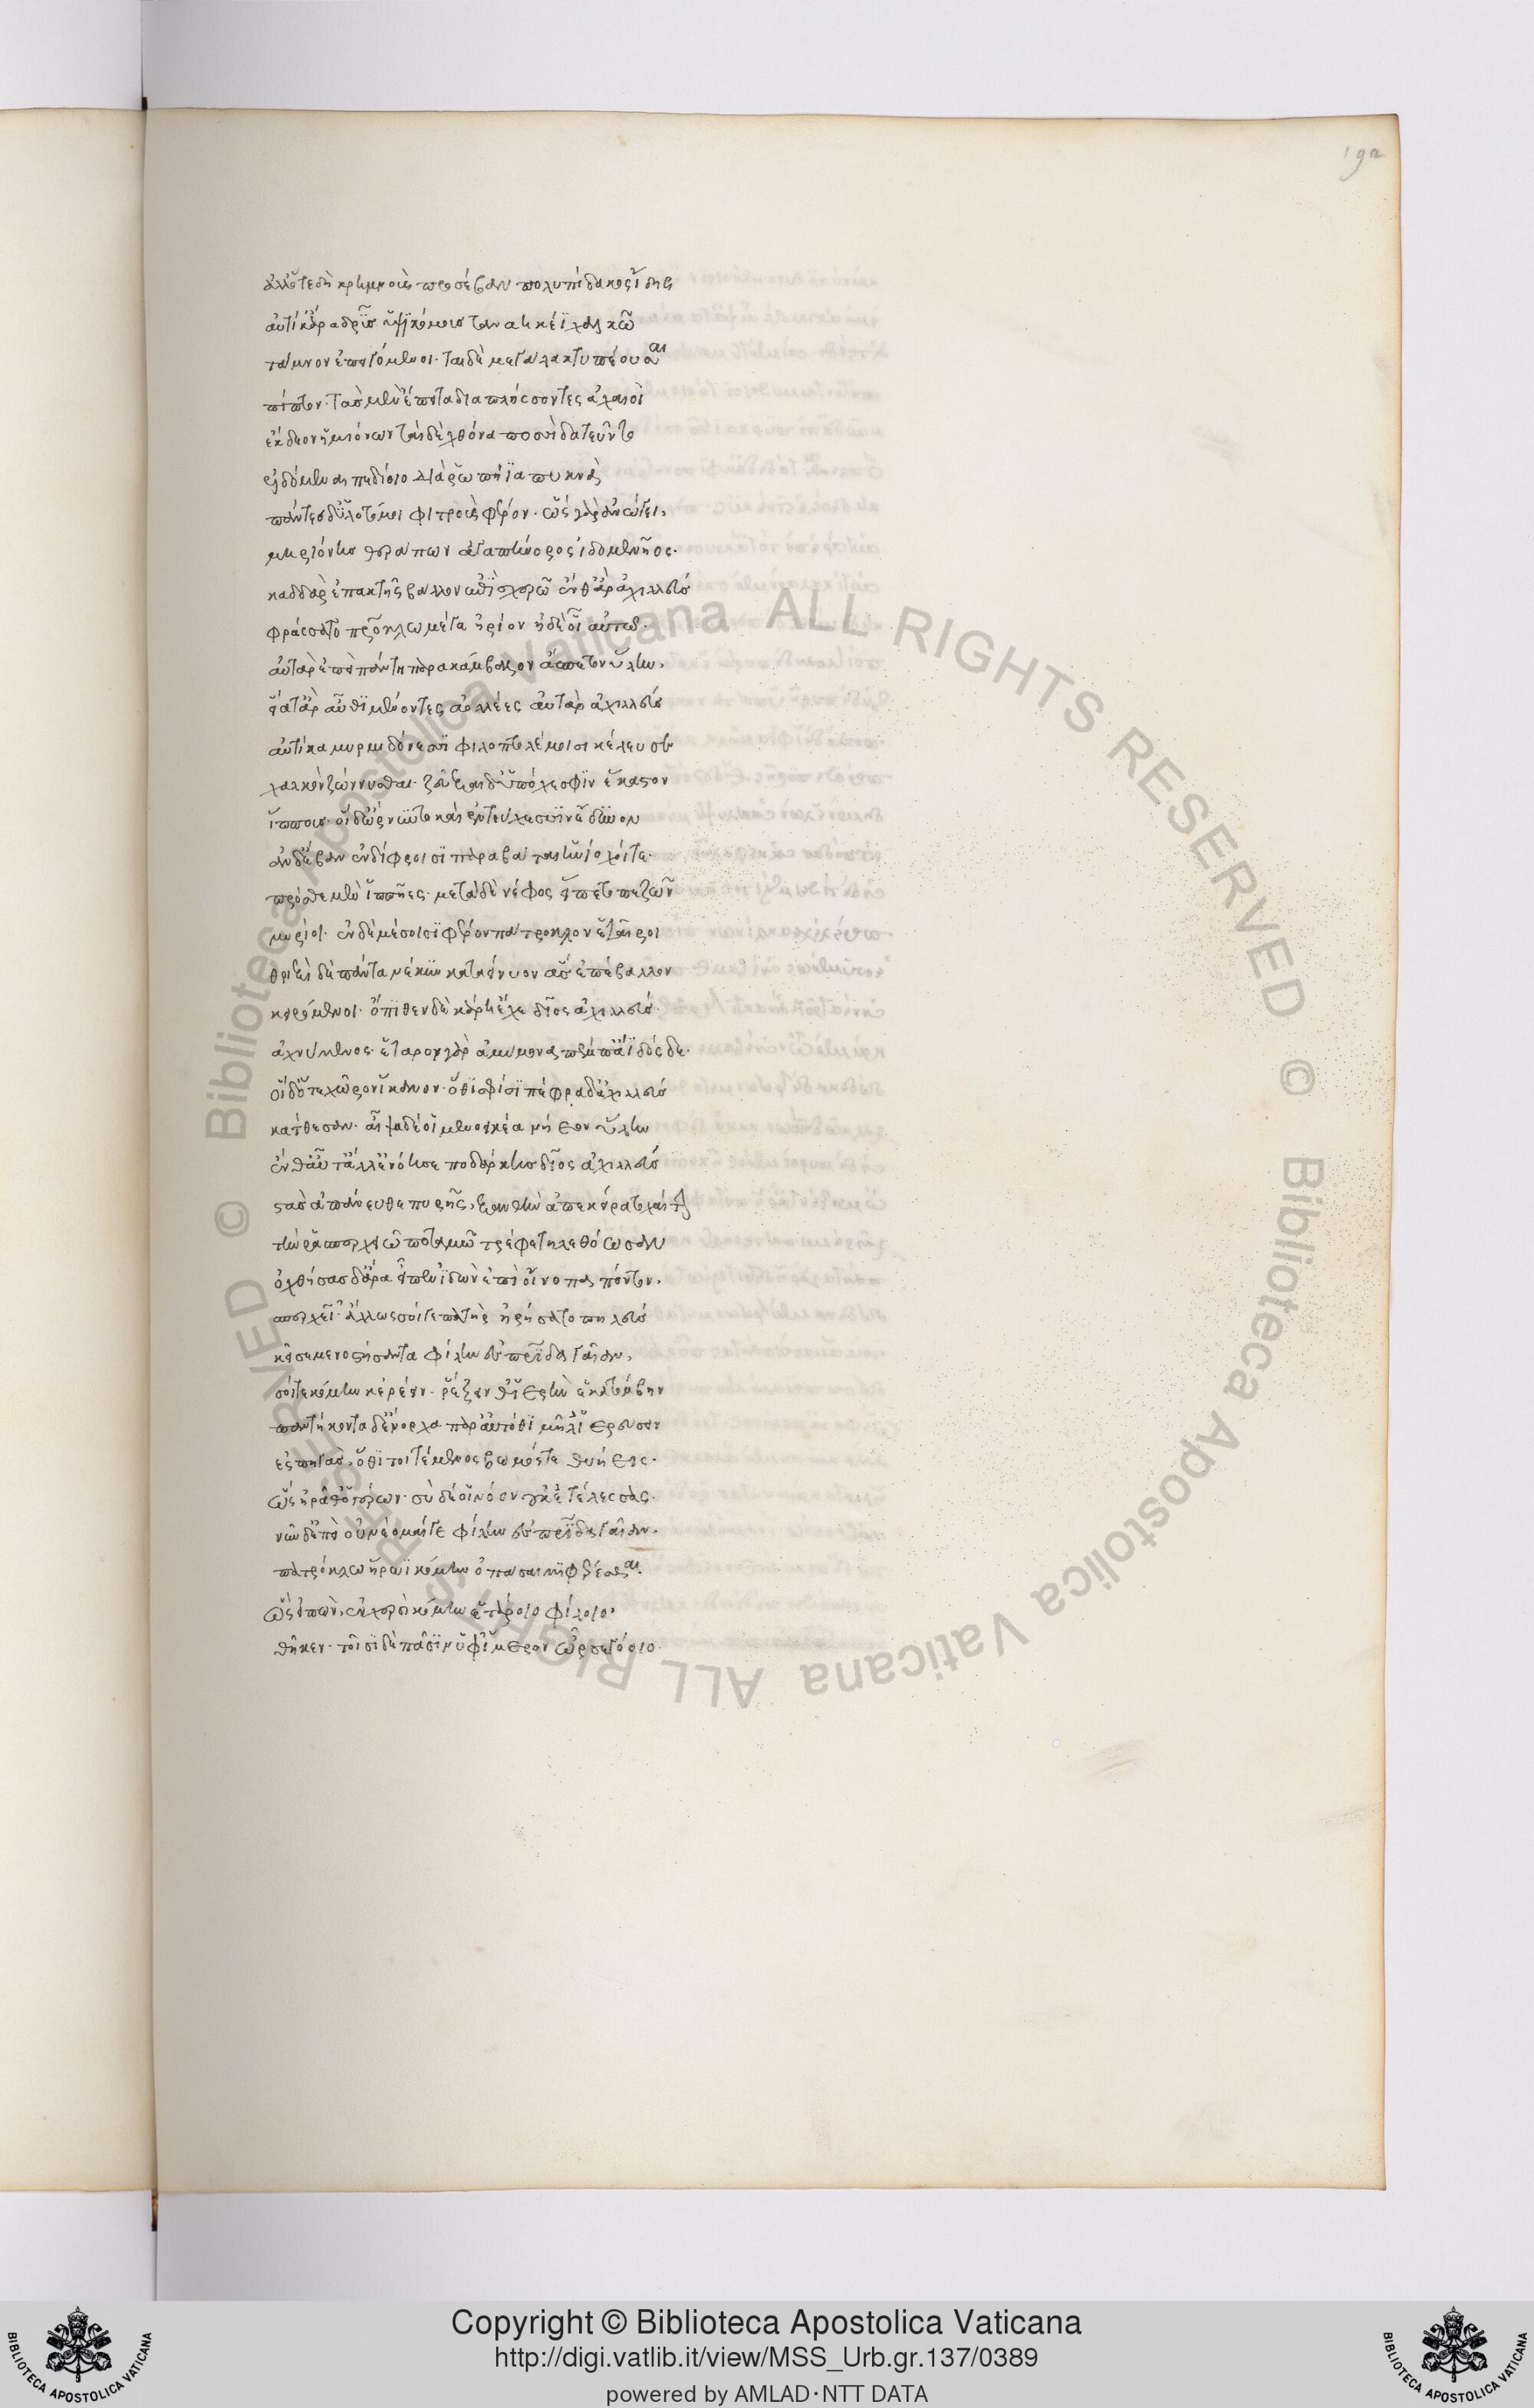 192
ἀλλ' ὅτε δὴ κνημοὺς προσέβαν πολυπίδακος ἴδης
αὐτίκ' ἄρα δρῦς ὑψικόμους ταναήκεϊ χαλκῶ
τάμνον ἐπειγόμενοι· ταὶ δὲ μεγάλα κτυπέουσαι
πῖπτον· τὰς μὲν ἔπειτα διαπλήσσοντες ἀχαιοὶ
ἔκδεον ἡμιόνων· ταὶ δὲ χθόνα ποσσὶ δατεῦντο
ἐλδόμεναι πεδίοιο διὰ ῥωπήϊα πυκνὰ
πάντες δ' ὑλοτόμοι φιτροὺς φέρον· ὣς γὰρ ἀνώγει,
μηριόνης θεράπων ἀγαπήνορος ἰδομενῆος·
καδδ' ἄρ' ἐπ' ἀκτῆς βάλλον ἐπισχερὼ ἔνθ' ἄρ' ἀχιλλεὺς
φράσσατο πατρόκλω μέγα ἠρίον ἠδὲ οἷ αὐτῶ·
αὐτὰρ ἐπεὶ πάντη παρακάμβαλον ἄσπετον ὕλην,
εἵατ' ἄρ' αὖθι μένοντες ἀολλέες αὐτὰρ ἀχιλλεὺς
αὐτίκα μυρμιδόνεσσι φιλοπτολέμοισι κέλευσε
χαλκὸν ζώννυσθαι· ζεῦξαι δ' ὑπ' ὄχεσφιν ἕκαστον
ἵππους· οἱ δ' ὤρνυντο καὶ ἐν τεύχεσσιν ἔδυνον
ἂν δ' ἔβαν ἐν δίφροισι παραβάται ἡνίοχοί τε·
πρόσθε μὲν ἱππῆες· μετὰ δὲ νέφος εἵπετο πεζῶν
μυρίοι· ἐν δὲ μέσοισι φέρον πάτροκλον ἑταῖροι
θριξὶ δὲ πάντα νέκυν καταείνυον ἃς ἐπέβαλλον
κειρόμενοι· ὄπιθεν δὲ κάρη ἔχε δῖος ἀχιλλεὺς
ἀχνύμενος· ἕταρον γὰρ ἀμύμονα πέμπ' ἄϊδόσδε·
οἱ δ' ὅτε χῶρον ἵκανον· ὅθι σφίσι πέφραδ' ἀχιλλεὺς
κάτθεσαν· αἶψα δέ οἱ μενοεικέα νήεον ὕλην
ἔνθ' αὖτ' ἄλλ' ἐνόησε ποδάρκης δῖος ἀχιλλεὺς
στὰς ἀπάνευθε πυρῆς, ξανθὴν ἀπεκείρατο χαίτην
τήν ῥα σπερχειῶ ποταμῶ τρέφε τηλεθόωσαν
ὀχθήσας δ' ἄρα εἶπεν ἰδὼν ἐπὶ οἴνοπα πόντον,
σπερχεῖ' ἄλλως σοί γε πατὴρ ἠρήσατο πηλεὺς
κεῖσέ με νοστήσαντα φίλην ἐς πατρίδα γαῖαν,
σοί τε κόμην κερέειν· ῥέξειν θ' ἱερὴν ἑκατόμβην
πεντήκοντα δ' ἔνορχα παρ' αὐτόθι μῆλ' ἱερεύσειν
ἐς πηγὰς, ὅθι τοι τέμενος βωμός τε θυήεις·
ὣς ἠρᾶθ' ὁ γέρων· σὺ δέ οἱ νόον οὐκ ἐτέλεσσας·
νῦν δ' ἐπεὶ οὐ νέομαί γε φίλην ἐς πατρίδα γαῖαν·
πατρόκλω ἥρωϊ κόμην ὀπάσαιμι φέρεσθαι·
ὣς εἰπὼν, ἐν χερσὶ κόμην ἑτάροιο φίλοιο,
θῆκεν· τοῖσι δὲ πᾶσιν ὑφ' ἵμερον ὦρσε γόοιο·
Copyright © Biblioteca Apostolica Vaticana
http://digi.vatlib.it/view/MSS_Urb.gr.137/0389
powered by AMLAD·NTT DATA